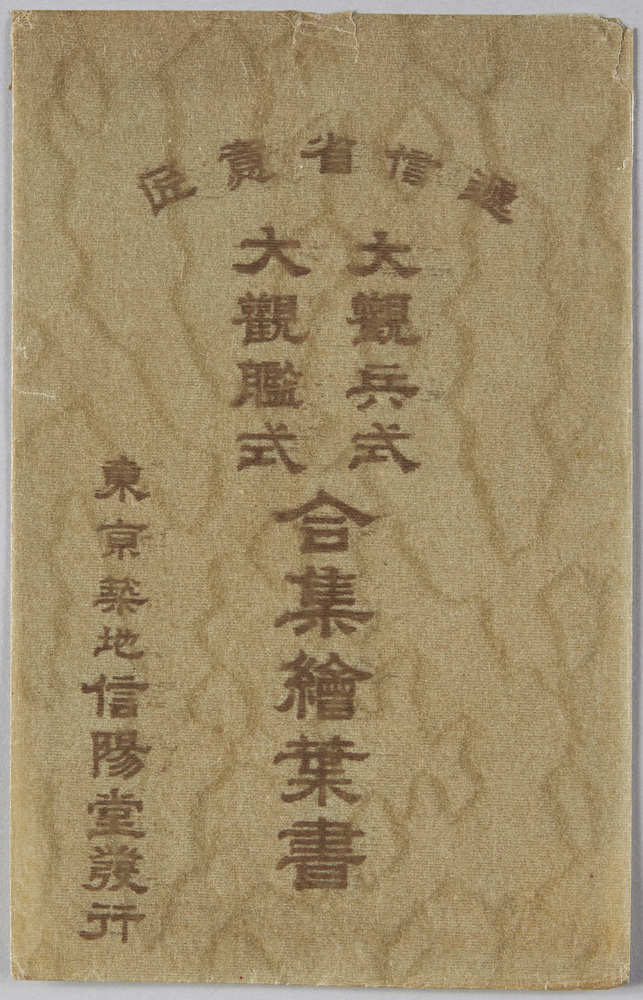 遞信省意匠
大觀兵式
大觀艦式
合集繪葉書
東京築地信陽堂發行